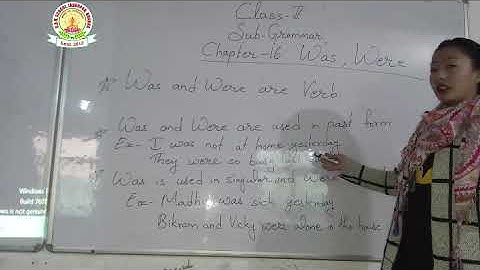 Class-II
Sub-Grammar
Chapter-16 Was, Were
Was and Were are Verb
Was and Were are used in past form
Ex- I was not at home yesterday
They were so busy last
Was is used in singular and Were
Ex- Madhu was sick yesterday
Bikram and Vicky were alone in the house
Windows 7
Build 760
ows is not genuine